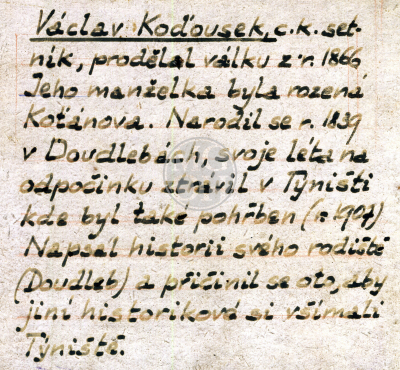 Václav Koďousek, c.k. set-
ník, prodělal válku z r. 1866
Jeho manželka byla rozená
Koťánova. Narodil se r. 1839
v Doudlebách, svoje léta na
odpočinku ztravil v Týništi
kde byl také pohřben (r. 1907)
Napsal historii svého rodiště
(Doudleb) a přičinil se oto, aby
jiní historikové si všímali
Týniště.